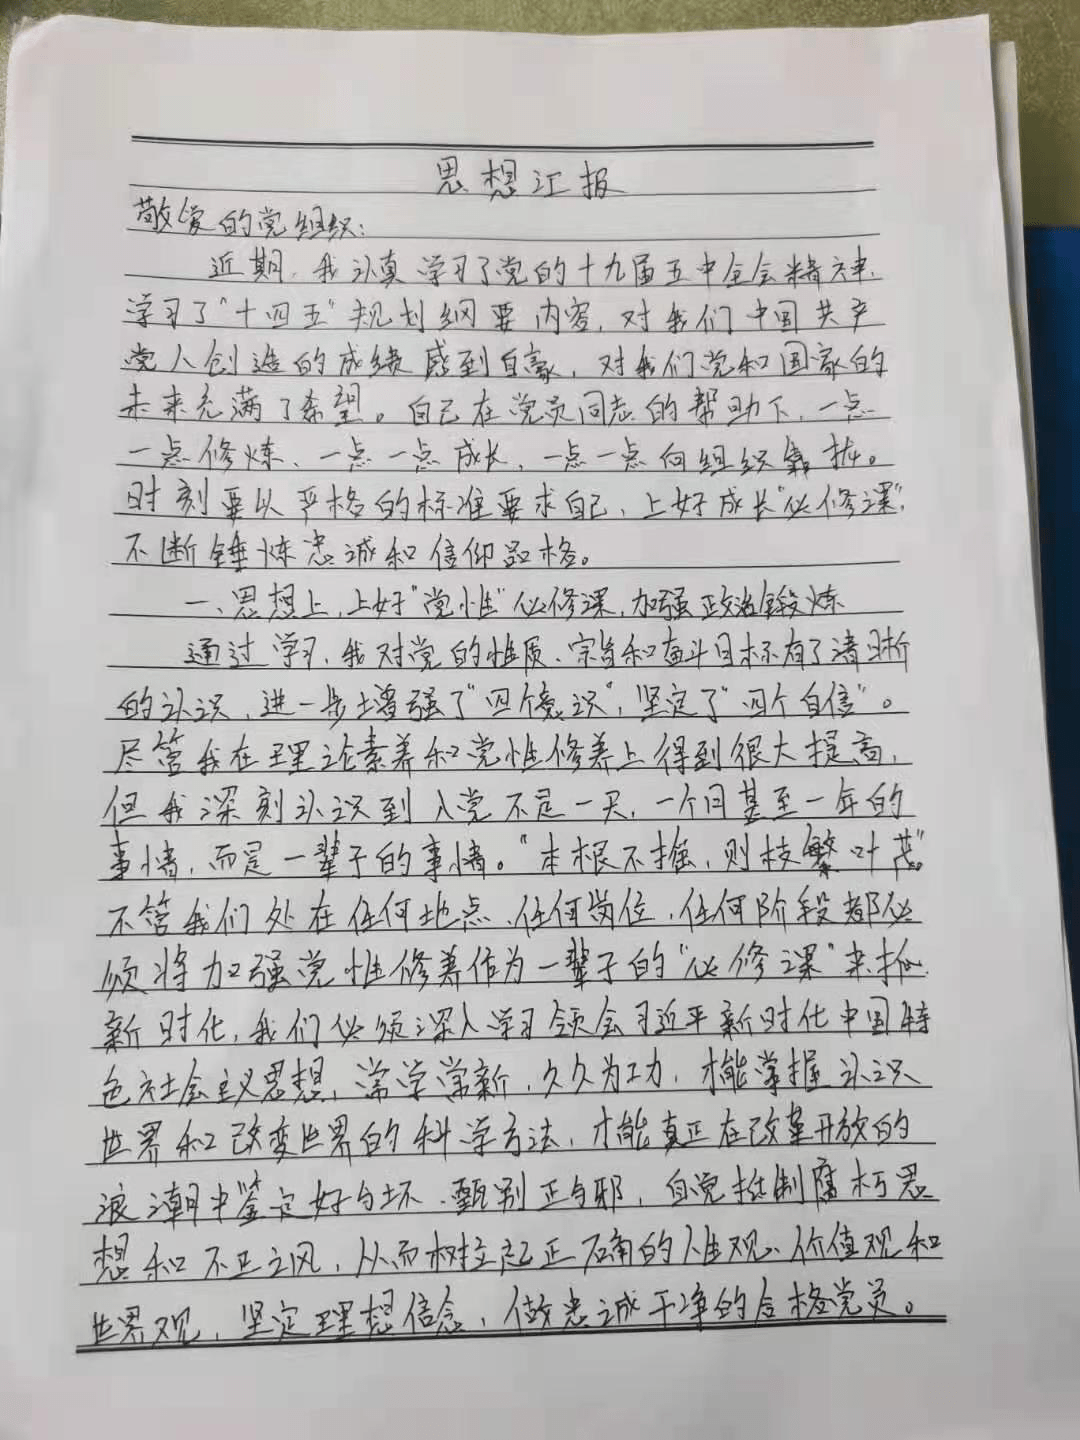 思想汇报
敬爱的党组织：
近期，我认真学习了党的十九届五中全会精神，
学习了“十四五”规划纲要内容，对我们中国共产
党人创造的成绩感到自豪，对我们党和国家的
未来充满了希望。自己在党员同志的帮助下，一点
一点修炼、一点一点成长，一点一点向组织靠拢。
时刻要以严格的标准要求自己，上好成长“必修课”，
不断锤炼忠诚和信仰品格。
一、思想上，上好“党性”必修课，加强政治锻炼
通过学习，我对党的性质、宗旨和奋斗目标有了清晰
的认识，进一步增强了“四个意识”，坚定了“四个自信”。
尽管我在理论素养和党性修养上得到很大提高，
但我深刻认识到入党不是一天，一个月甚至一年的
事情，而是一辈子的事情。“本根不摇，则枝繁叶茂”
不管我们处在任何地点、任何岗位，任何阶段都必
须将加强党性修养作为一辈子的“必修课”来抓，
新时代，我们必须深入学习领会习近平新时代中国特
色社会主义思想，常学常新，久久为功，才能掌握认识
世界和改变世界的科学方法，才能真正在改革开放的
浪潮中鉴定好与坏、甄别正与邪，自觉抵制腐朽思
想和不正之风，从而树立起正确的人生观、价值观和
世界观，坚定理想信念，做忠诚干净的合格党员。